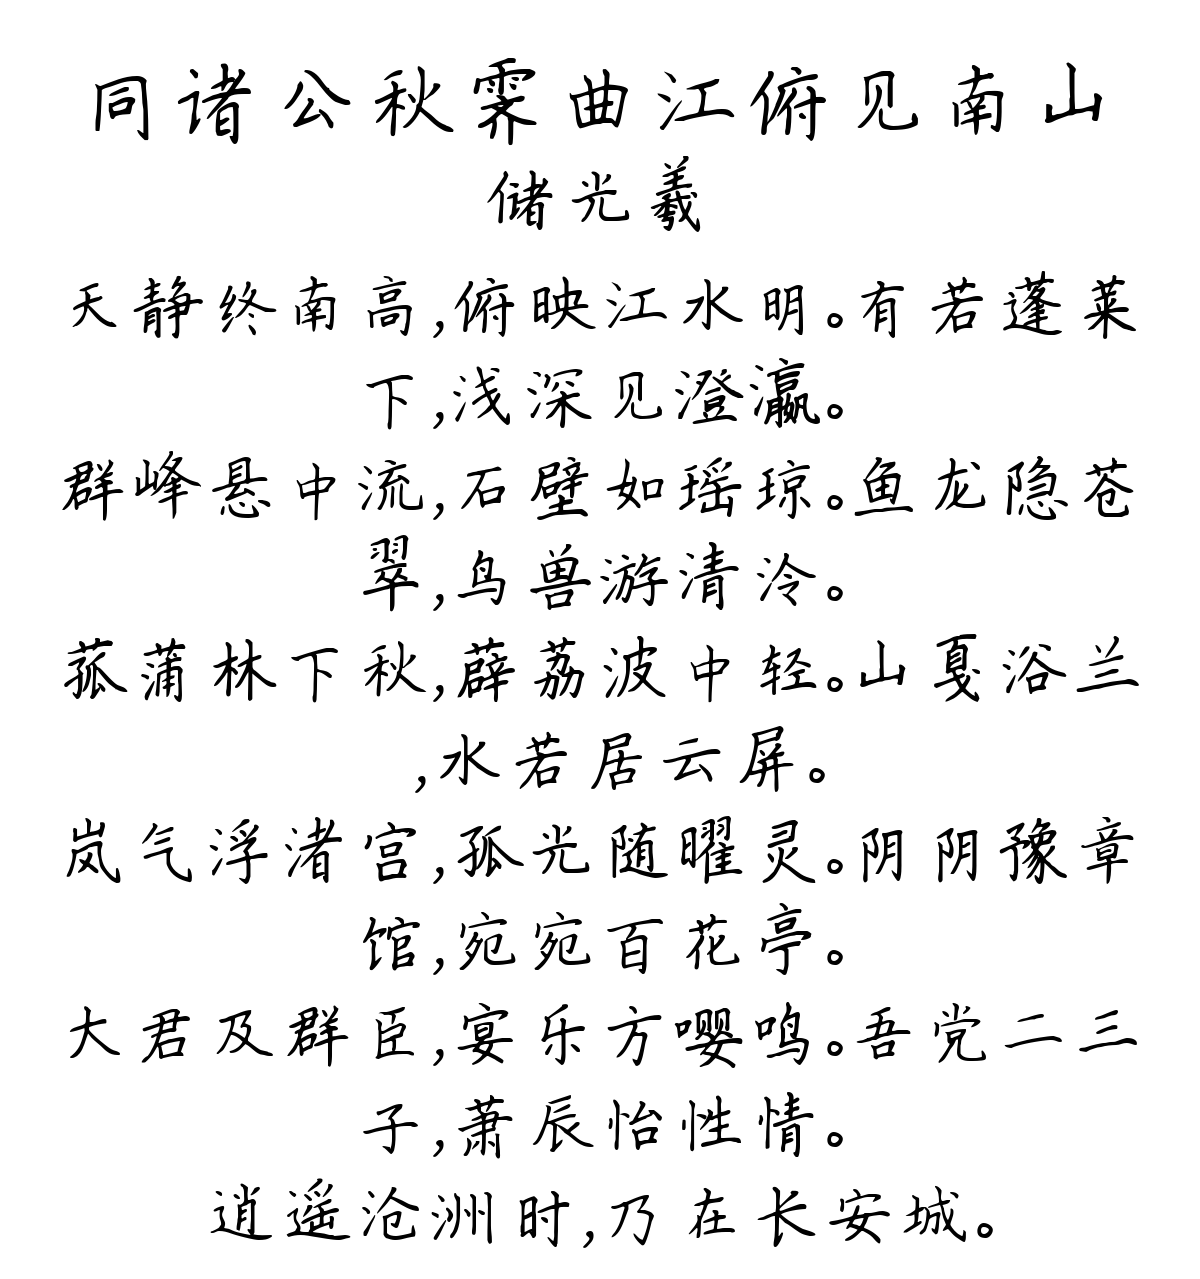 同诸公秋霁曲江俯见南山
储光羲
天静终南高,俯映江水明。有若蓬莱
下,浅深见澄瀛。
群峰悬中流,石壁如瑶琼。鱼龙隐苍
翠,鸟兽游清泠。
菰蒲林下秋,薜荔波中轻。山戛浴兰
,水若居云屏。
岚气浮渚宫,孤光随曜灵。阴阴豫章
馆,宛宛百花亭。
大君及群臣,宴乐方嘤鸣。吾党二三
子,萧辰怡性情。
逍遥沧洲时,乃在长安城。